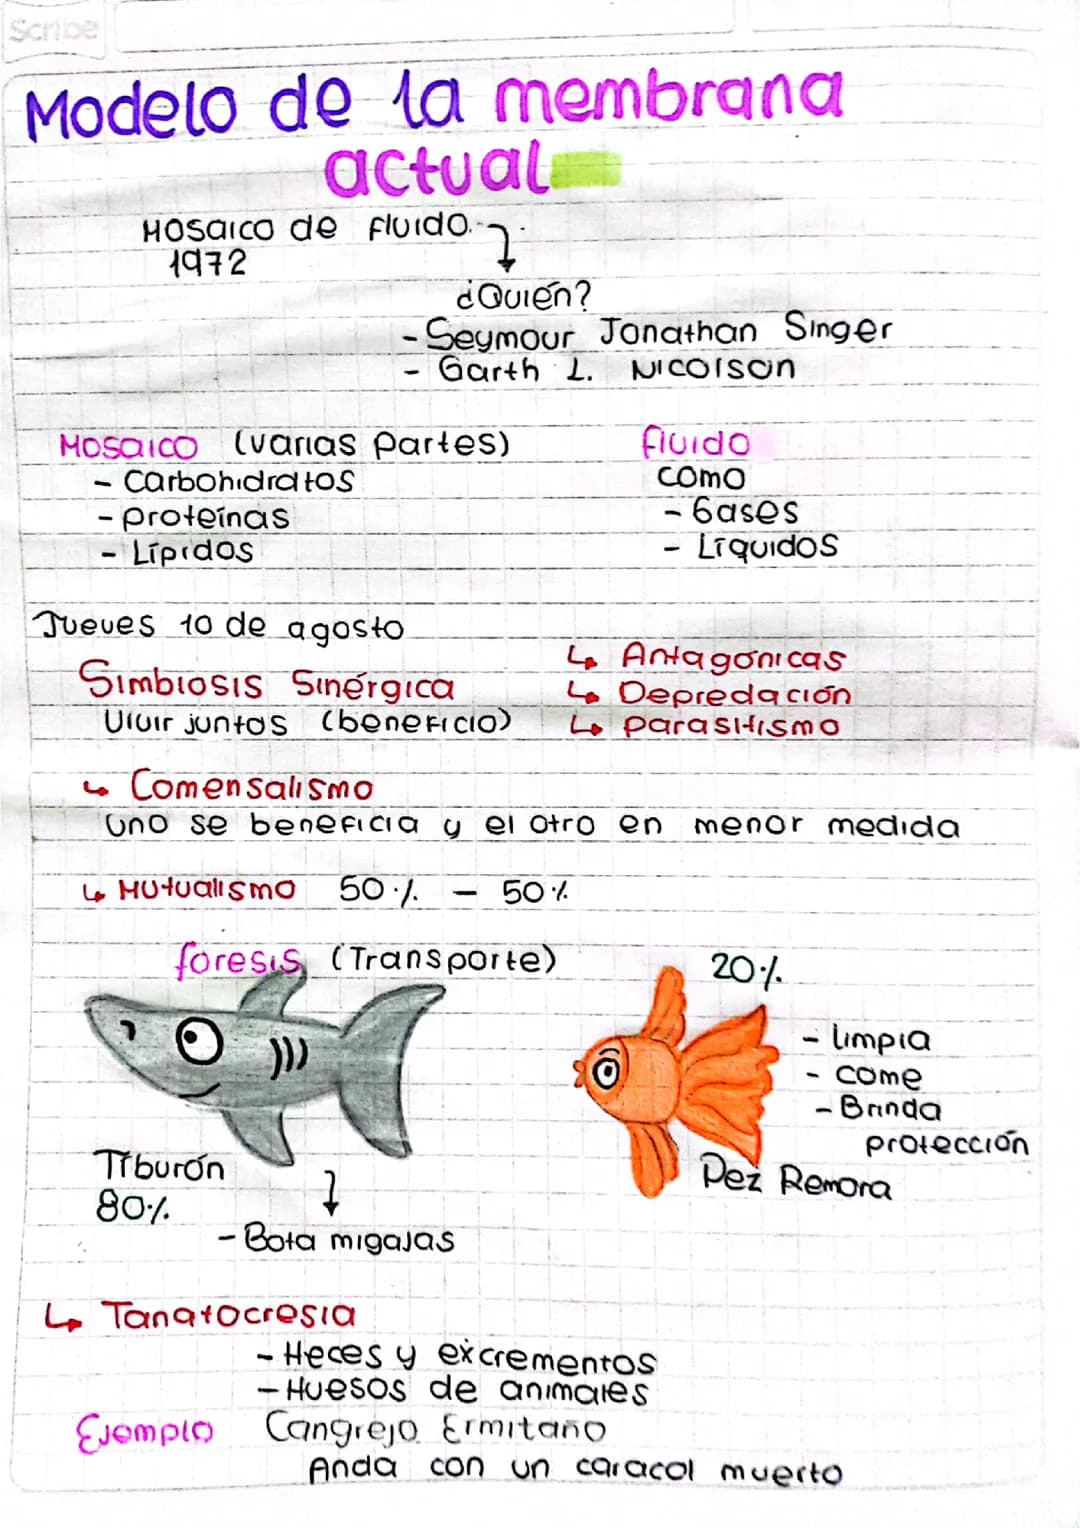 Scribe
Modelo de la membrana
actual
Mosaico de fluido.
1972
¿Quién?
- Seymour Jonathan Singer
- Garth L. Nicolson
Mosaico (varias partes)
- Carbohidratos
- proteínas
- Lípidos
fluido
como
- Gases
- Líquidos
Jueves 10 de agosto
Simbiosis Sinérgica
Vivir juntos (beneficio)
↳ Antagónicas
↳ Depredación
↳ parasitismo
↳ Comensalismo
uno se beneficia y el otro en menor medida
↳ Mutualismo 50% - 50%
foresis (Transporte)
20%
- limpia
- come
- Brinda
protección
Pez Remora
Tiburón
80%
- Bota migajas
↳ Tanatocresia
- Heces y excrementos
- Huesos de animales
Ejemplo Cangrejo Ermitaño
Anda con un caracol muerto